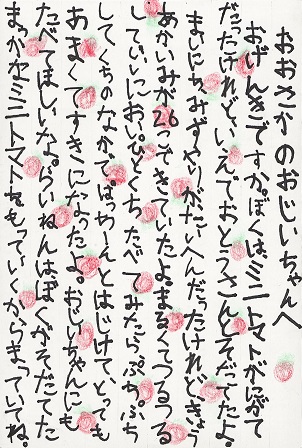 おおさかのおじいちゃんへ
おげんきですか。ぼくは、ミニトマトがにがて
だったけれど、いえでおとうさんとそだてたよ。
まいにちみずやりがたいへんだったけれど、きょう
あかいみが26こできていたよ。まるくてつるつる
していいにおい。ひとくちたべてみたら、ぷちぷち
してくちのなかで、ぱつーんとはじけてとっても
あまくてすきになったよ。おじいちゃんにも
たべてほしいな。らいねんはぼくがそだてた
まっかなミニトマトをもっていくからまっていてね。